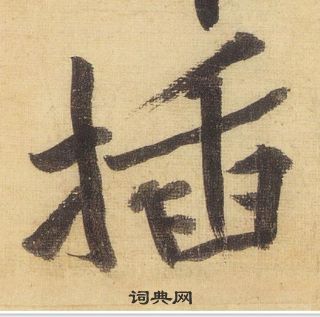 插
词典网